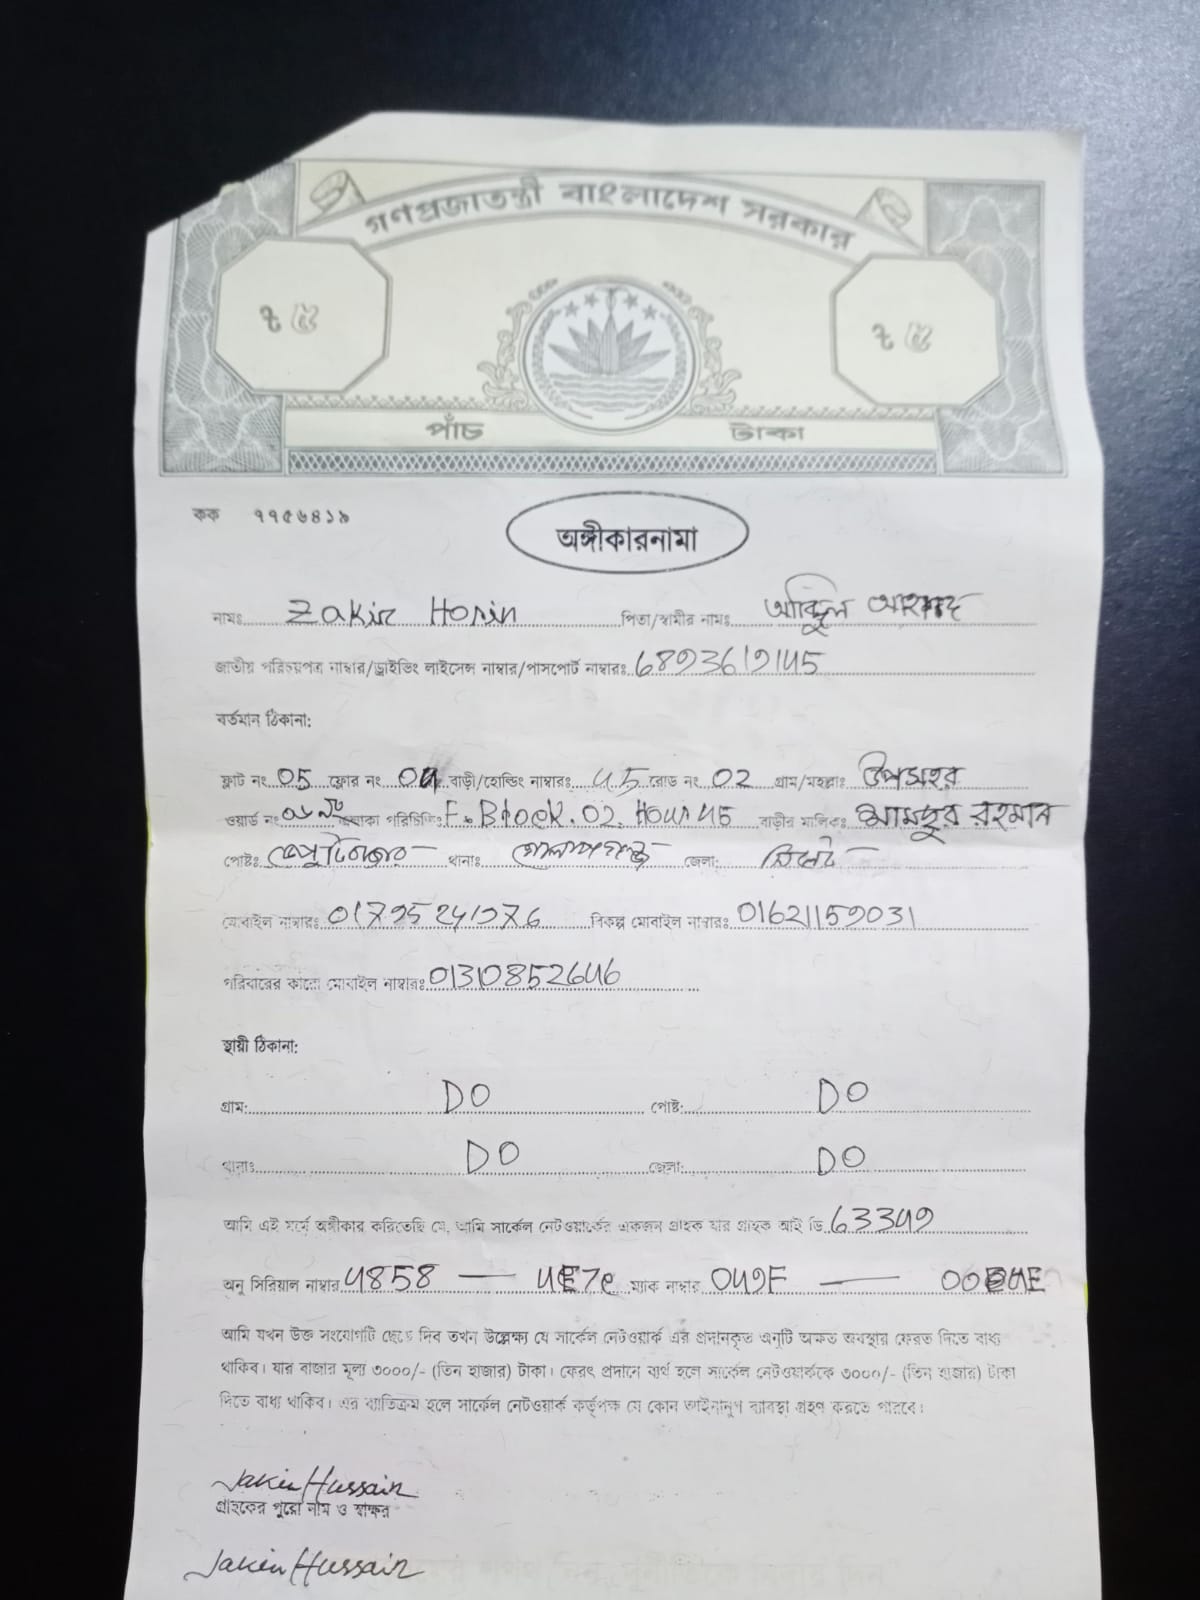 গণপ্রজাতন্ত্রী বাংলাদেশ সরকার
৳ ৫ ৳ ৫
পাঁচ টাকা
কক ৭৭৫৬৪১৯
অঙ্গীকারনামা
নামঃ Zakir Hosin পিতা/স্বামীর নামঃ
জাতীয় পরিচয়পত্র নাম্বার/ড্রাইভিং লাইসেন্স নাম্বার/পাসপোর্ট নাম্বারঃ 6893619145
বর্তমান ঠিকানা:
ফ্লাট নং 05 ফ্লোর নং 04 বাড়ী/হোল্ডিং নাম্বারঃ 45 রোড নং 02 গ্রাম/মহল্লাঃ উপসহর
ওয়ার্ড নং এলাকা পরিচিতিঃ F. Block. 02. Hous 45 বাড়ীর মালিকঃ রহমান
পোষ্টঃ থানাঃ জেলা: সিলেট
মোবাইল নাম্বারঃ বিকল্প মোবাইল নাম্বারঃ 01621159031
পরিবারের কারো মোবাইল নাম্বারঃ 01310852646
স্থায়ী ঠিকানা:
গ্রাম: DO পোষ্ট: DO
থানাঃ DO জেলা: DO
আমি এই মর্মে অঙ্গীকার করিতেছি যে, আমি সার্কেল নেটওয়ার্কের একজন গ্রাহক যার গ্রাহক আই ডি 63349
অনু সিরিয়াল নাম্বার 4858 — ম্যাক নাম্বার 049F —
আমি যখন উক্ত সংযোগটি ছেড়ে দিব তখন উল্লেক্ষ্য যে সার্কেল নেটওয়ার্ক এর প্রদানকৃত অনুটি অক্ষত অবস্থায় ফেরত দিতে বাধ্য
থাকিব। যার বাজার মূল্য ৩০০০/- (তিন হাজার) টাকা। ফেরৎ প্রদানে ব্যর্থ হলে সার্কেল নেটওয়ার্ককে ৩০০০/- (তিন হাজার) টাকা
দিতে বাধ্য থাকিব। এর ব্যাতিক্রম হলে সার্কেল নেটওয়ার্ক কর্তৃপক্ষ যে কোন আইনানুগ ব্যাবস্থা গ্রহণ করতে পারবে।
Jakir Hussain
গ্রাহকের পুরো নাম ও স্বাক্ষর
Jakir Hussain